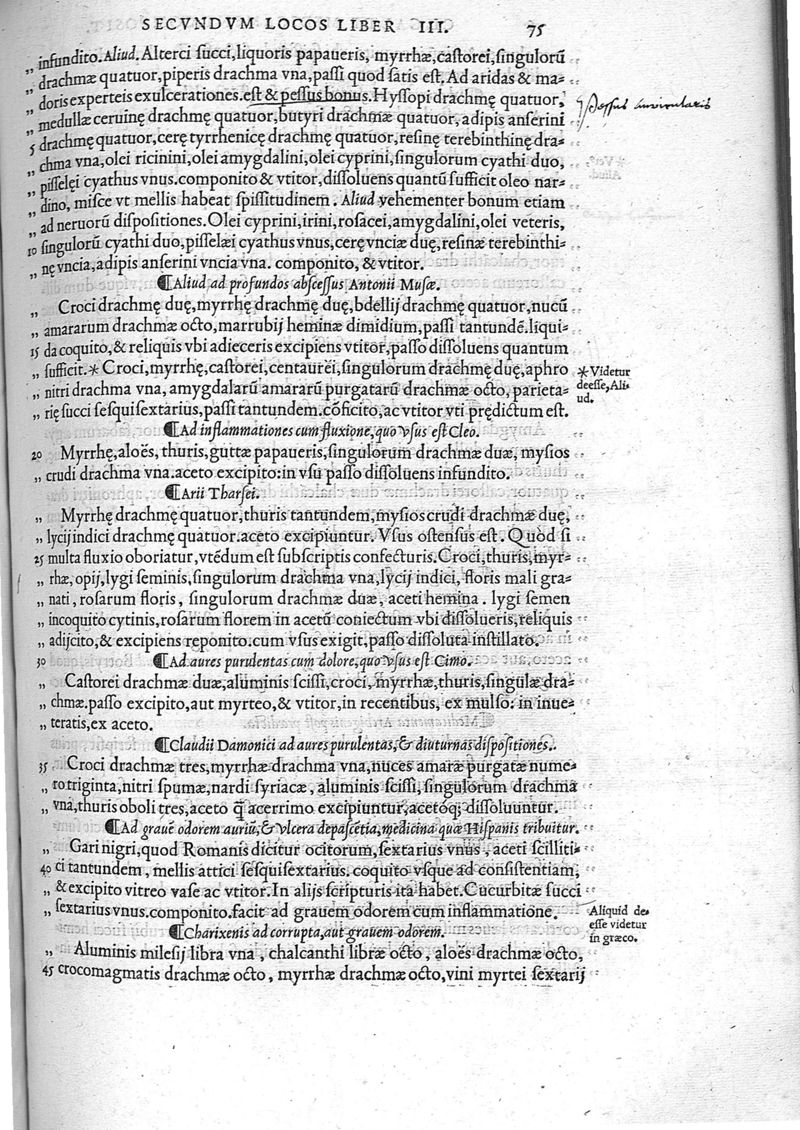 SECVNDVM LOCOS LIBER III. 75
„ infundito. Aliud. Alterci ſucci, liquoris papaueris, myrrhæ, caſtorei, ſingulorũ
„ drachmæ quatuor, piperis drachma vna, paſſi quod ſatis eſt. Ad aridas & ma-
„ doris experteis exulcerationes. eſt & peſſus bonus. Hyſſopi drachmę quatuor,
„ medullæ ceruinę drachmę quatuor, butyri drachmæ quatuor, adipis anſerini
5 drachmę quatuor, cerę tyrrhenicę drachmę quatuor, reſinę terebinthinę dra-
„ chma vna, olei ricinini, olei amygdalini, olei cyprini, ſingulorum cyathi duo,
„ piſſelęi cyathus vnus. componito & vtitor, diſſoluens quantũ ſufficit oleo nar-
„ dino, miſce vt mellis habeat ſpiſſitudinem. Aliud vehementer bonum etiam
„ ad neruorũ diſpoſitiones. Olei cyprini, irini, roſacei, amygdalini, olei veteris,
10 ſingulorũ cyathi duo, piſſelæi cyathus vnus, cerę vnciæ duę, reſinæ terebinthi-
„ nę vncia, adipis anſerini vncia vna. componito, & vtitor.
¶Aliud ad profundos abſceſſus Antonii Muſæ.
„ Croci drachmę duę, myrrhę drachmę duę, bdellij drachmę quatuor, nucũ
„ amararum drachmæ octo, marrubij heminæ dimidium, paſſi tantundẽ. liqui-
15 da coquito, & reliquis vbi adieceris excipiens vtitor, paſſo diſſoluens quantum
„ ſufficit. * Croci, myrrhę, caſtorei, centaurẽi, ſingulorum drachmę duę, aphro
„ nitri drachma vna, amygdalarũ amararũ purgatarũ drachmæ octo, parieta-
„ rię ſucci ſeſquiſextarius, paſſi tantundem. cõficito, ac vtitor vti prędictum eſt.
* Videtur
deeſſe, Ali-
ud.
¶Ad inflammationes cum fluxione, quo vſus eſt Cleo.
20 Myrrhę, aloẽs, thuris, guttæ papaueris, ſingulorum drachmæ duæ, myſios
„ crudi drachma vna. aceto excipito: in vſu paſſo diſſoluens infundito.
¶Arii Tharſei.
„ Myrrhę drachmę quatuor, thuris tantundem, myſios crudi drachmæ duę,
„ lycij indici drachmę quatuor. aceto excipiuntur. Vſus oſtenſus eſt. Quòd ſi
25 multa fluxio oboriatur, vtẽdum eſt ſubſcriptis confecturis. Croci, thuris, myr-
„ rhæ, opij, lygi ſeminis, ſingulorum drachma vna, lycij indici, floris mali gra-
„ nati, roſarum floris, ſingulorum drachmæ duæ, aceti hemina. lygi ſemen
„ incoquito cytinis, roſarum florem in acetũ coniectum vbi diſſolueris, reliquis
„ adijcito, & excipiens reponito. cum vſus exigit, paſſo diſſoluta inſtillato.
30 ¶Ad aures purulentas cum dolore, quo vſus eſt Cimo.
„ Caſtorei drachmæ duæ, aluminis ſciſſi, croci, myrrhæ, thuris, ſingulæ dra-
„ chmæ. paſſo excipito, aut myrteo, & vtitor, in recentibus, ex mulſo: in inue-
„ teratis, ex aceto.
¶Claudii Damonici ad aures purulentas, & diuturnas diſpoſitiones.
35 Croci drachmæ tres, myrrhæ drachma vna, nuces amaræ purgatæ nume-
„ ro triginta, nitri ſpumæ, nardi ſyriacæ, aluminis ſciſſi, ſingulorum drachma
„ vna, thuris oboli tres, aceto q̃ acerrimo excipiuntur, acetóq; diſſoluuntur.
¶Ad grauẽ odorem auriũ, & vlcera depaſcẽtia, medicina quæ Hiſpanis tribuitur.
„ Gari nigri, quod Romanis dicitur ocitorum, ſextarius vnus, aceti ſcilliti-
40 ci tantundem, mellis attici ſeſquiſextarius. coquito vſque ad conſiſtentiam,
„ & excipito vitreo vaſe ac vtitor. In alijs ſcripturis ita habet. Cucurbitæ ſucci
„ ſextarius vnus. componito. facit ad grauem odorem cum inflammatione.
Aliquid de-
eſſe videtur
in græco.
¶Charixenis ad corrupta, aut grauem odorem.
„ Aluminis mileſij libra vna, chalcanthi libræ octo, aloẽs drachmæ octo,
45 crocomagmatis drachmæ octo, myrrhæ drachmæ octo, vini myrtei ſextarij